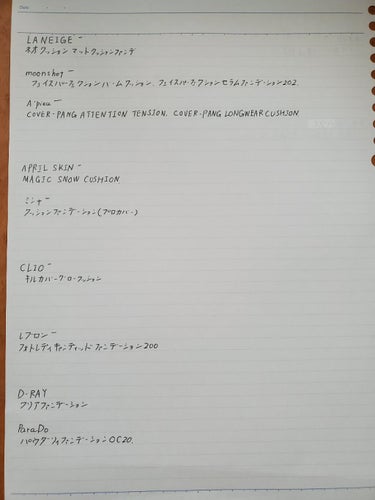 Date
LANEIGE ー
ネオクッション マットクッションファンデ
moonshot ー
フェイスパーフェクションバームクッション. フェイスパーフェクションセラムファンデーション202.
A'pieu ー
COVER-PANG ATTENTION TENSION. COVER-PANG LONGWEAR CUSHION
APRIL SKIN ー
MAGIC SNOW CUSHION
ミシャ ー
クッションファンデーション(プロカバー)
CLIO ー
キルカバーグロークッション
レブロン ー
フォトレディキャンディッドファンデーション200
D-RAY
クリアファンデーション
ParaDo
パウダリィファンデーションOC20.